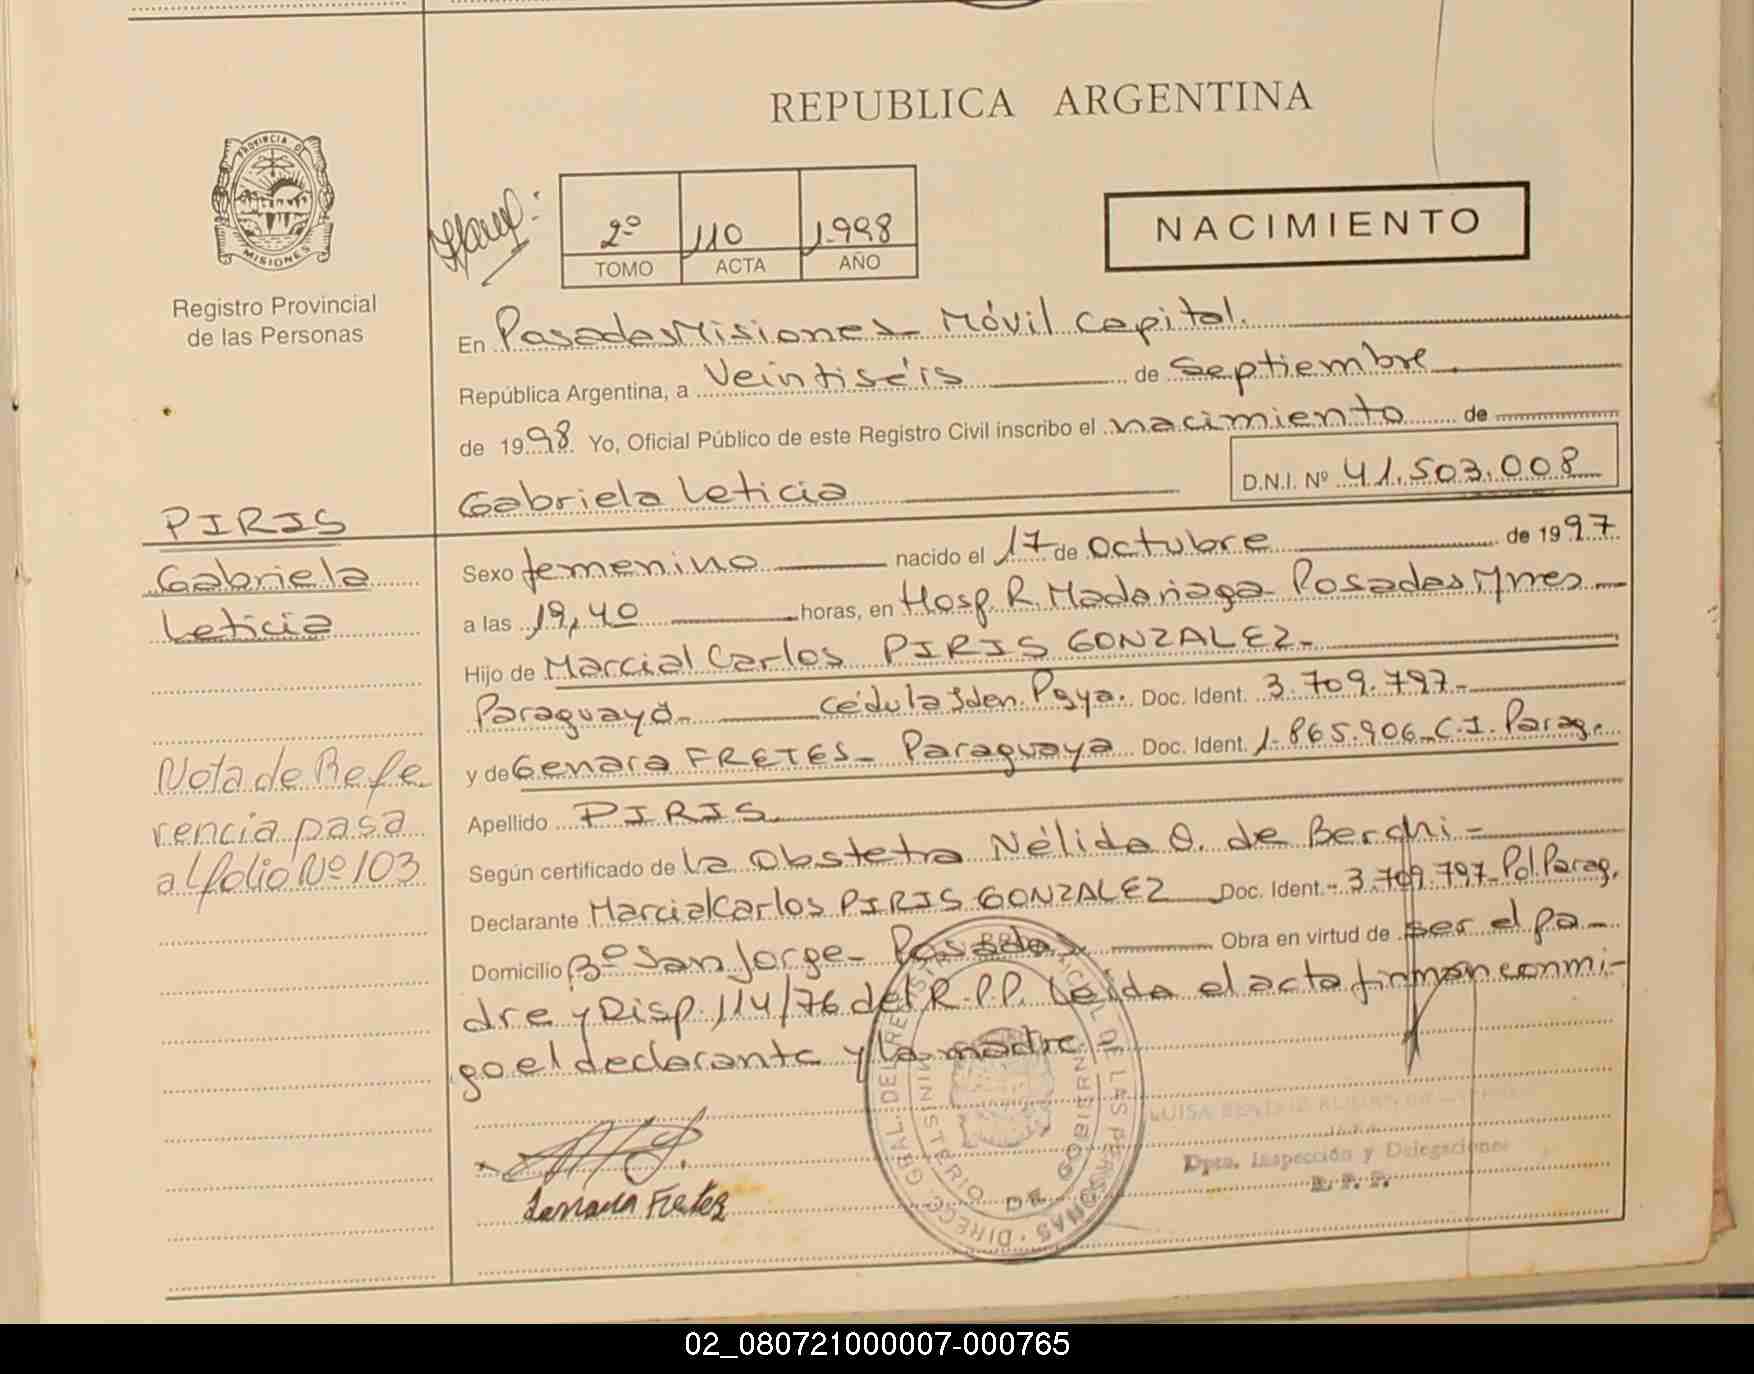 REPUBLICA ARGENTINA
PROVINCIA D
MISIONES
Registro Provincial
de las Personas
2º 110 1.998
TOMO ACTA AÑO
NACIMIENTO
En Posadas Misiones - Móvil Capital.
República Argentina, a Veintiséis de Septiembre
de 1998 Yo, Oficial Público de este Registro Civil inscribo el nacimiento de
Gabriela Leticia
D.N.I. Nº 41.503.008
PIRIS
Gabriela
Leticia
Sexo femenino nacido el 17 de Octubre de 1997
a las 19,40 horas, en Hosp. R. Madariaga Posadas Mnes
Hijo de Marcial Carlos PIRIS GONZALEZ-
Paraguayo- Cédula Iden. Pgya. Doc. Ident. 3.709.797-
y de Genara FRETES- Paraguaya Doc. Ident. 1.865.906-C.I. Parag.
Apellido PIRIS
Según certificado de la Obstetra Nélida O. de Berchi-
Declarante Marcial Carlos PIRIS GONZALEZ Doc. Ident.- 3.709.797-Pol Parag.
Domicilio Bº San Jorge- Posadas Obra en virtud de ser el pa-
dre y Disp. 114/76 del R.P.P. Leída el acta firman conmi-
go el declarante y la madre-
Nota de Refe
rencia pasa
al folio Nº 103
Fretez
DIRECC. GRAL. DEL REGISTRO PROVINCIAL DE LAS PERSONAS
MINISTERIO DE GOBIERNO
Dpto. Inspección y Delegaciones
R. P. P.
02_080721000007-000765